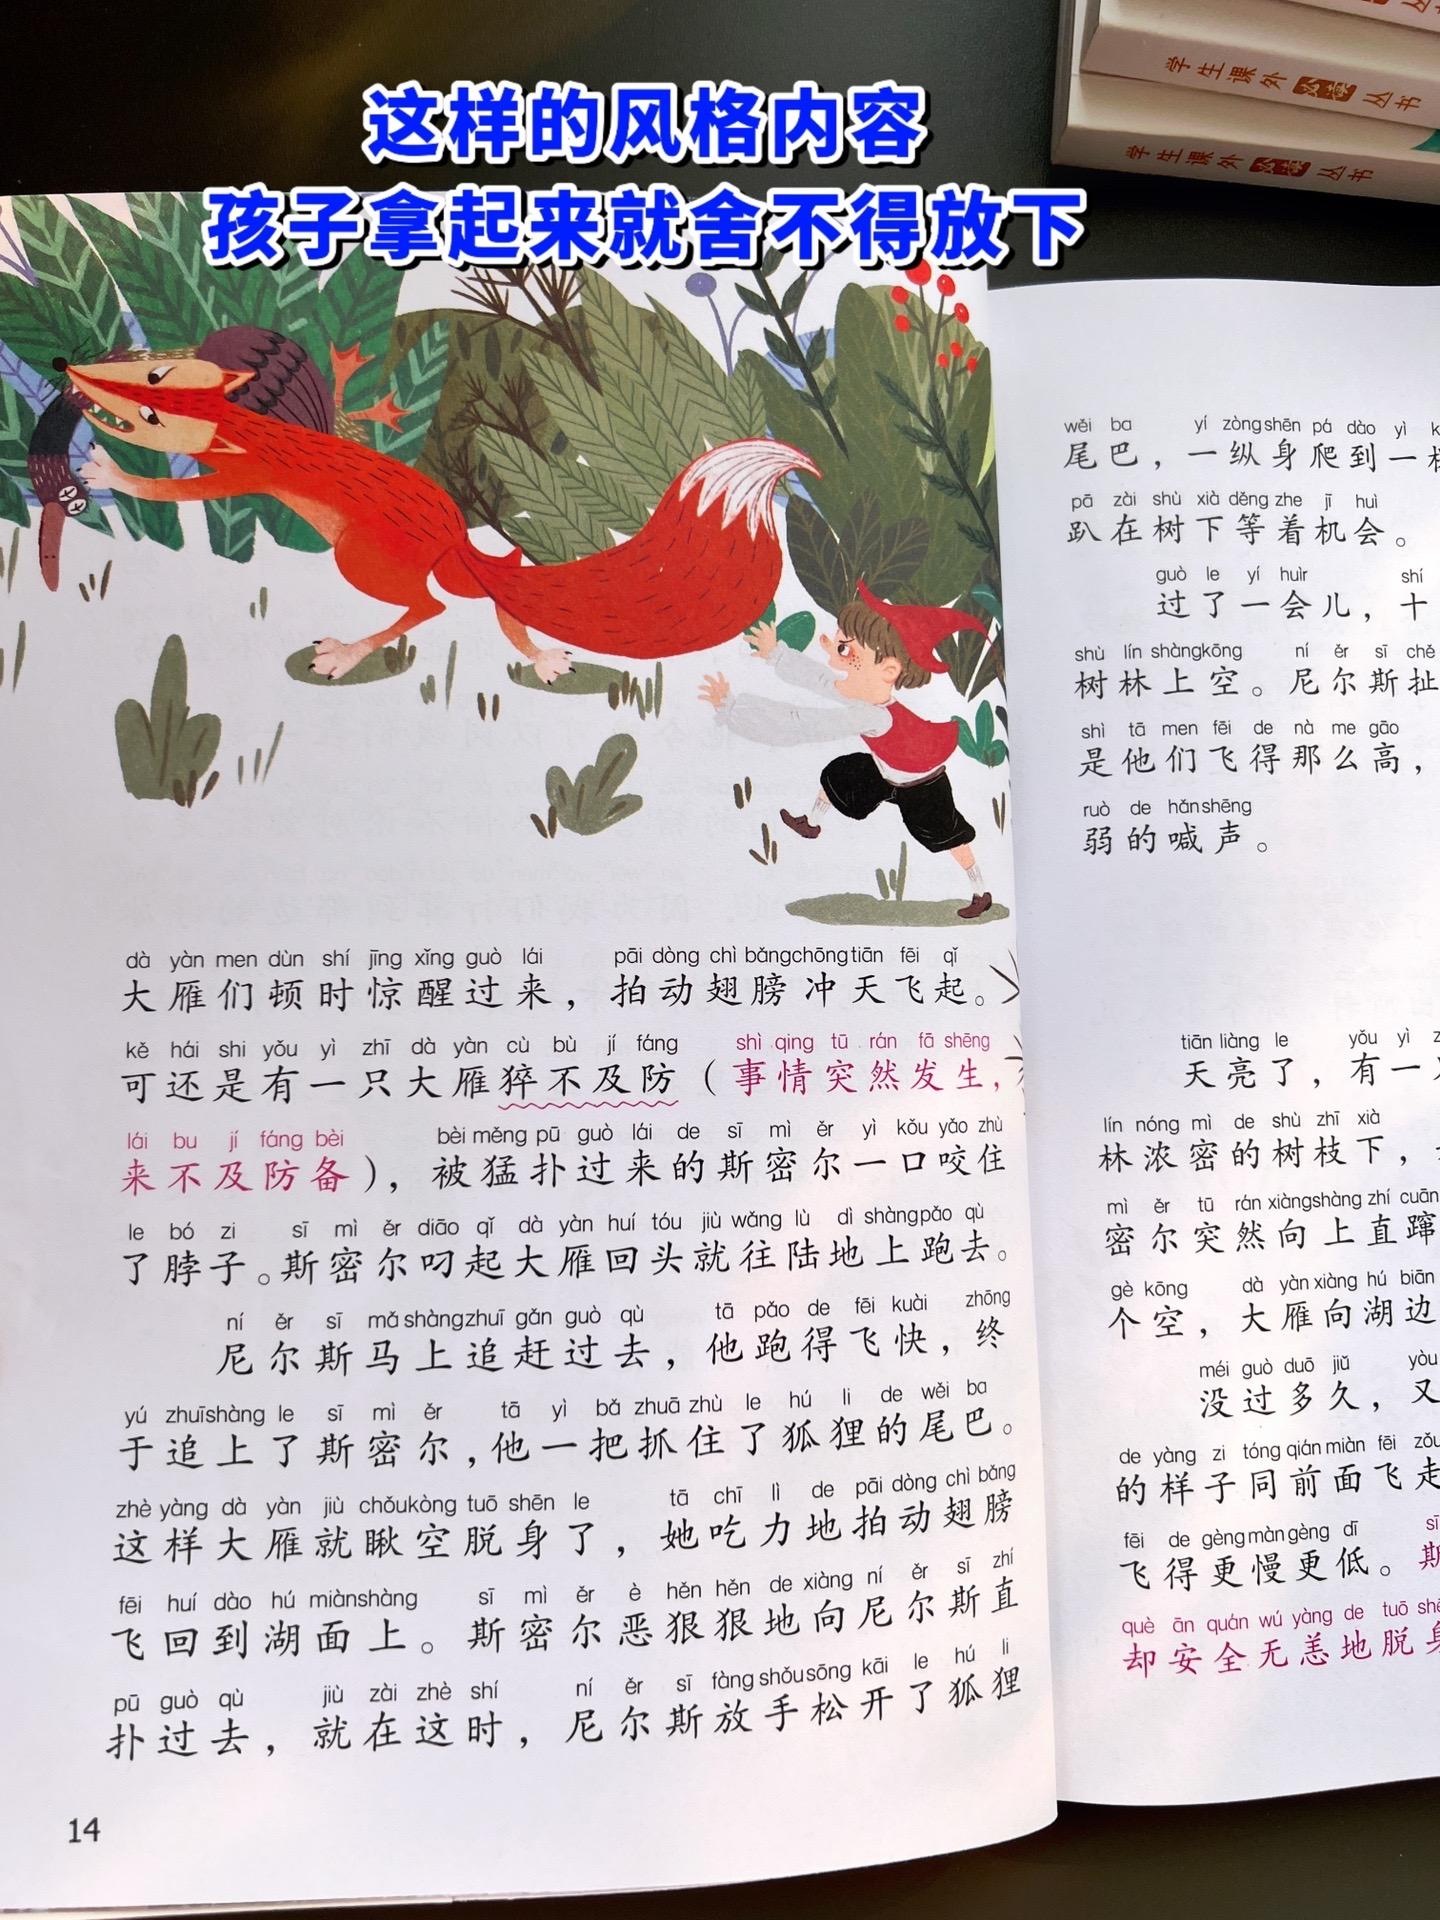 这样的风格内容
孩子拿起来就舍不得放下
学生课外必读丛书
学生课外必读丛书
dà yàn men dùn shí jīng xǐng guò lái pāi dòng chì bǎng chōng tiān fēi qǐ
大雁们顿时惊醒过来，拍动翅膀冲天飞起。
kě hái shi yǒu yì zhī dà yàn cù bù jí fáng shì qing tū rán fā shēng
可还是有一只大雁猝不及防（事情突然发生，
lái bu jí fáng bèi bèi měng pū guò lái de sī mì ěr yì kǒu yǎo zhù
来不及防备），被猛扑过来的斯密尔一口咬住
le bó zi sī mì ěr diāo qǐ dà yàn huí tóu jiù wǎng lù dì shàng pǎo qù
了脖子。斯密尔叼起大雁回头就往陆地上跑去。
ní ěr sī mǎ shàng zhuī gǎn guò qù tā pǎo de fēi kuài zhōng
尼尔斯马上追赶过去，他跑得飞快，终
yú zhuī shàng le sī mì ěr tā yì bǎ zhuā zhù le hú li de wěi ba
于追上了斯密尔，他一把抓住了狐狸的尾巴。
zhè yàng dà yàn jiù chǒu kòng tuō shēn le tā chī lì de pāi dòng chì bǎng
这样大雁就瞅空脱身了，她吃力地拍动翅膀
fēi huí dào hú miàn shàng sī mì ěr è hěn hěn de xiàng ní ěr sī zhí
飞回到湖面上。斯密尔恶狠狠地向尼尔斯直
pū guò qù jiù zài zhè shí ní ěr sī fàng shǒu sōng kāi le hú li
扑过去，就在这时，尼尔斯放手松开了狐狸
14
wěi ba yí zòng shēn pá dào yì
尾巴，一纵身爬到一
pā zài shù xià děng zhe jī huì
趴在树下等着机会。
guò le yí huìr shí
过了一会儿，十
shù lín shàng kōng ní ěr sī chě
树林上空。尼尔斯扯
shì tā men fēi de nà me gāo
是他们飞得那么高，
ruò de hǎn shēng
弱的喊声。
tiān liàng le yǒu yì
天亮了，有一
lín nóng mì de shù zhī xià
林浓密的树枝下，
mì ěr tū rán xiàng shàng zhí cuān
密尔突然向上直蹿
gè kōng dà yàn xiàng hú biān
个空，大雁向湖边
méi guò duō jiǔ yòu
没过多久，又
de yàng zi tóng qián miàn fēi zǒu
的样子同前面飞走
fēi de gèng màn gèng dī sī
飞得更慢更低。斯
què ān quán wú yàng de tuō shēn
却安全无恙地脱身